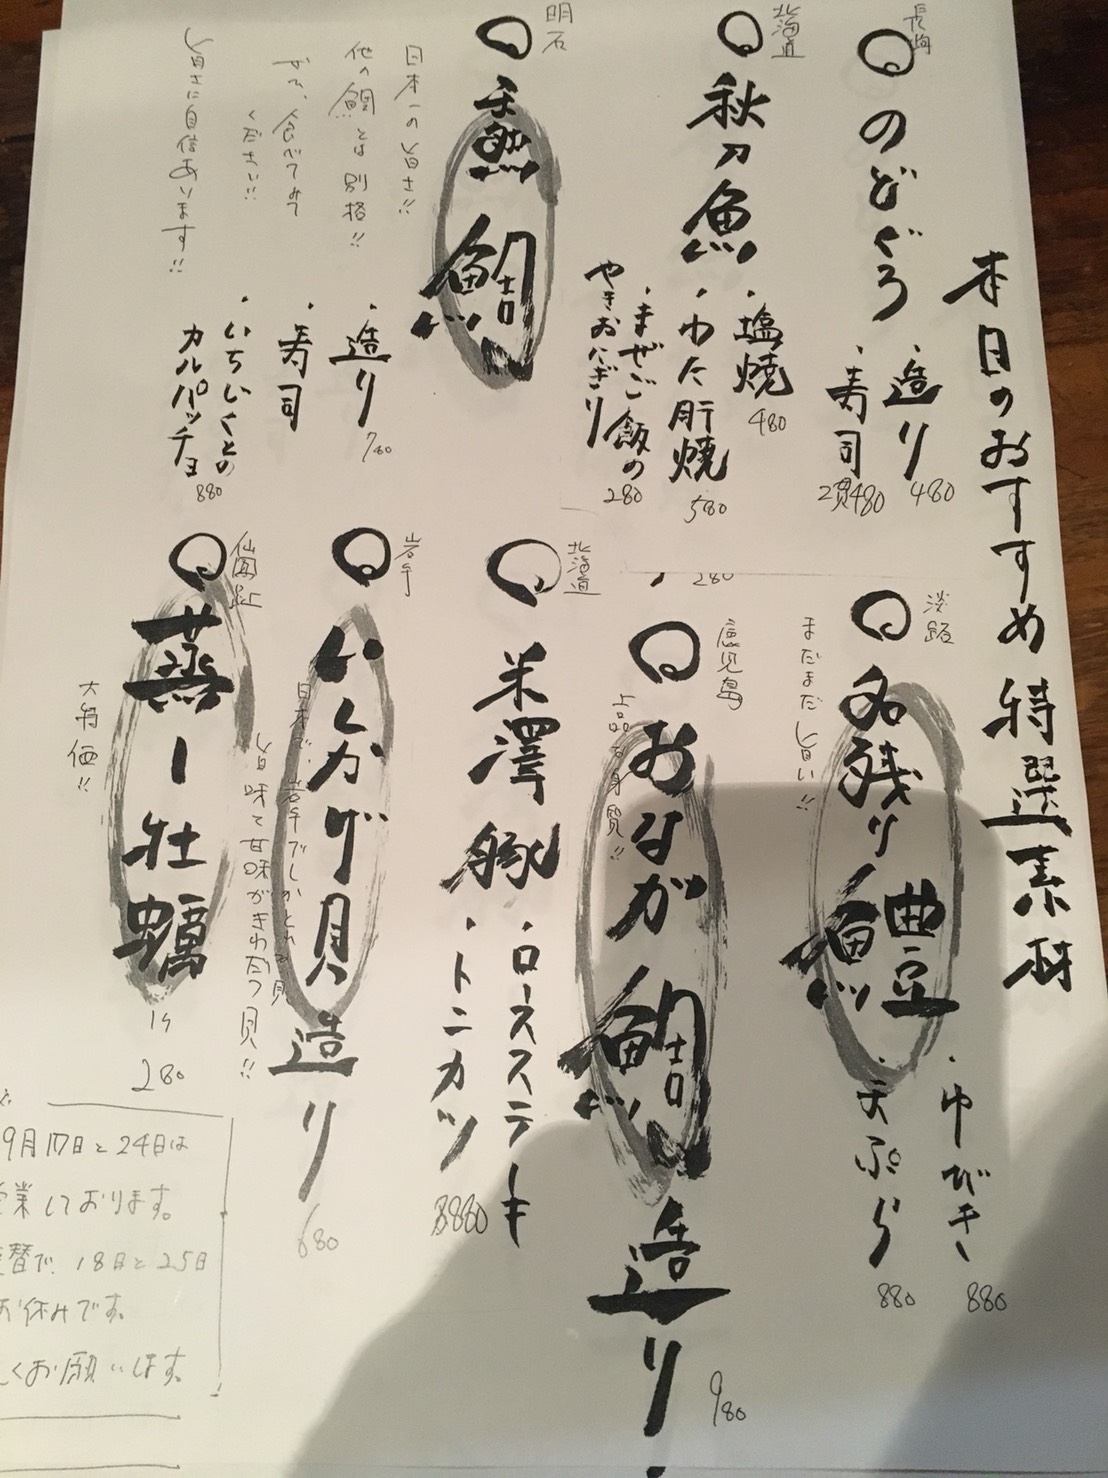 本日のおすすめ 特選素材
長崎
のどぐろ
・造り 480
・寿司 2貫480
北海道
秋刀魚
・塩焼 480
・わた肝焼 580
・まぜご飯の
やきおにぎり 280
明石
天然 鯛
日本一の旨さ!!
他の鯛とは別格!!
ぜひ、食べてみて
ください!!
旨さに自信あります!!
・造り 780
・寿司
・いちじくとの
カルパッチョ 880
淡路
名残り鱧
まだまだ旨い!!
・ゆびき 880
・天ぷら 880
280
鹿児島
おなが鯛造り
上品な身質!!
980
北海道
米澤豚
・ロースステーキ
・トンカツ
880
岩手
いしかげ貝造り
日本で、岩手でしかとれない貝
旨味と甘味がきわだつ貝!!
680
仙鳳趾
蒸し牡蠣
大特価!!
1ケ
280
9月17日と24日は
営業しております。
振替で、18日と25日
お休みです。
しくお願いします。